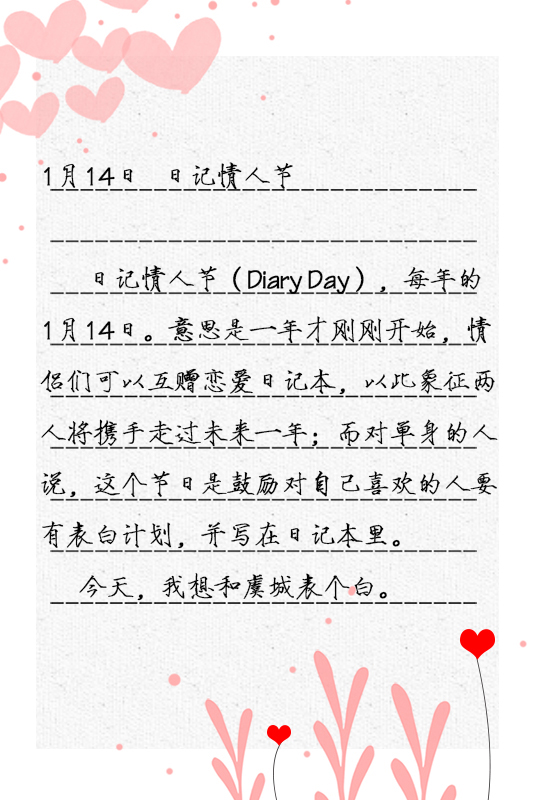 1月14日 日记情人节
日记情人节（Diary Day），每年的
1月14日。意思是一年才刚刚开始，情
侣们可以互赠恋爱日记本，以此象征两
人将携手走过未来一年；而对单身的人
说，这个节日是鼓励对自己喜欢的人要
有表白计划，并写在日记本里。
今天，我想和虞城表个白。